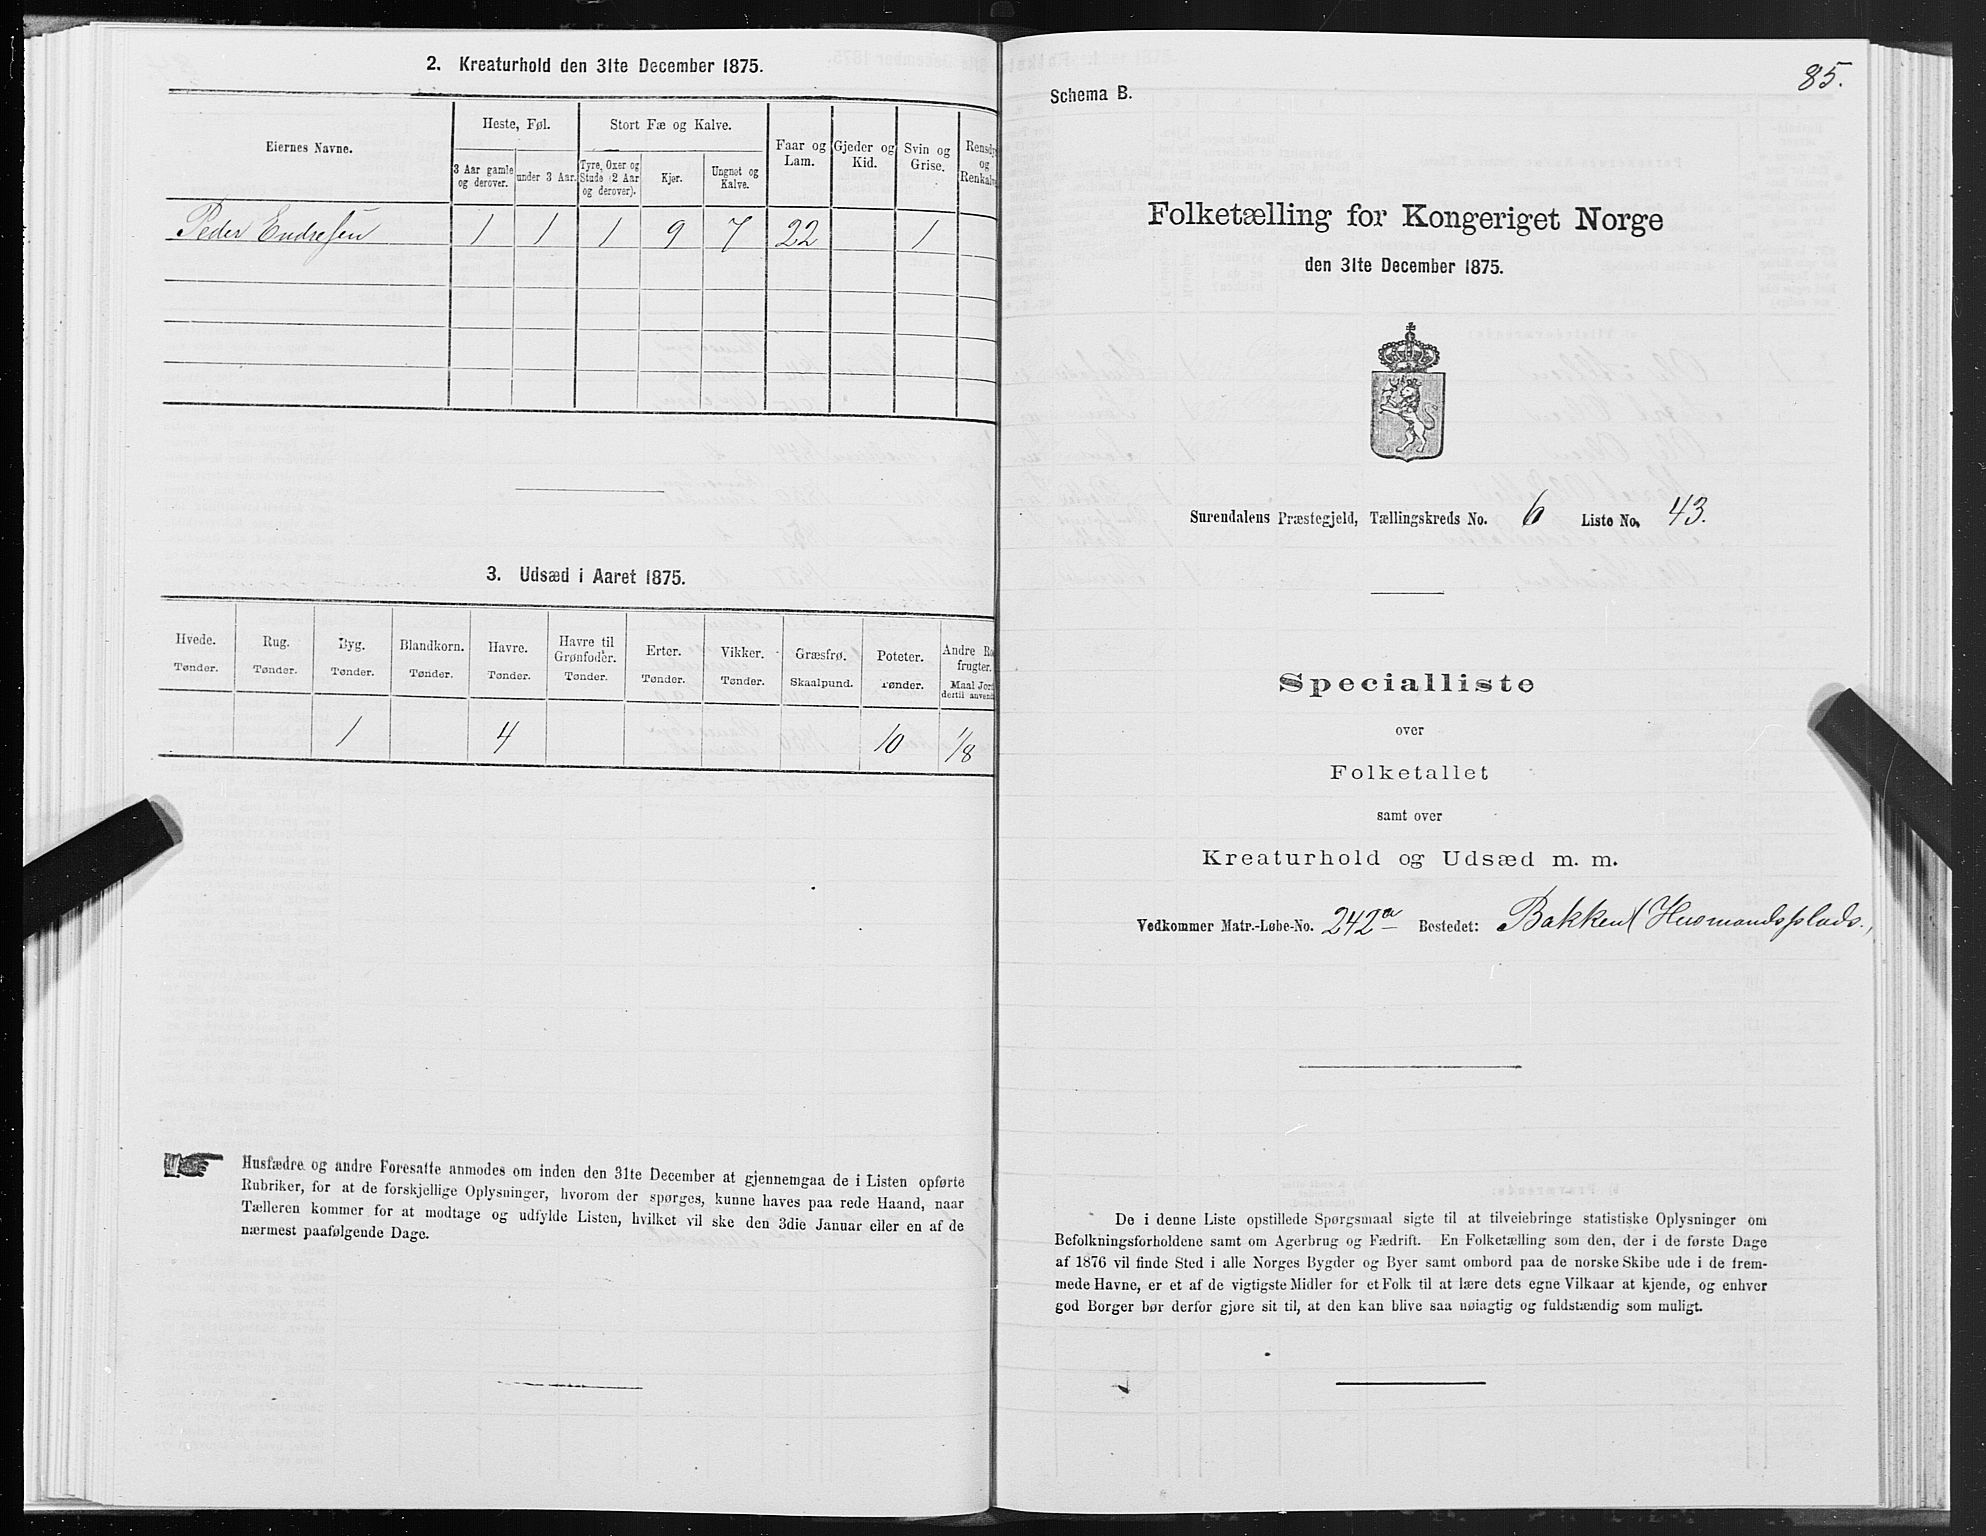 2. Kreaturhold den 31te December 1875.
Eiernes Navne.
Heste, Føl.
Stort Fæ og Kalve.
Faar og Lam.
Gjeder og Kid.
Svin og Grise.
Rensdyr og Renkalve
3 Aar gamle og derover.
under 3 Aar.
Tyre, Oxer og Stude (2 Aar og derover).
Kjør.
Ungnøt og Kalve.
Peder Endresen 1 1 1 9 7 22 1
3. Udsæd i Aaret 1875.
Hvede. Rug. Byg. Blandkorn. Havre. Havre til Grønfoder. Erter. Vikker. Græsfrø. Poteter. Andre Ro frugter.
Tønder. Tønder. Tønder. Tønder. Tønder. Tønder. Tønder. Tønder. Skaalpund. Tønder. Maal Jord dertil anvend
1 4 10 1/8
Husfædre og andre Foresatte anmodes om inden den 31te December at gjennemgaa de i Listen opførte
Rubriker, for at de forskjellige Oplysninger, hvorom der spørges, kunne haves paa rede Haand, naar
Tælleren kommer for at modtage og udfylde Listen, hvilket vil ske den 3die Januar eller en af de
nærmest paafølgende Dage.
85.
Schema B.
Folketælling for Kongeriget Norge
den 31te December 1875.
Surendalens Præstegjeld, Tællingskreds No. 6 Liste No. 43.
Specialliste
over
Folketallet
samt over
Kreaturhold og Udsæd m. m.
Vedkommer Matr.-Løbe-No. 242a Bostedet: Bakken (Husmandsplads.)
De i denne Liste opstillede Spørgsmaal sigte til at tilveiebringe statistiske Oplysninger om
Befolkningsforholdene samt om Agerbrug og Fædrift. En Folketælling som den, der i de første Dage
af 1876 vil finde Sted i alle Norges Bygder og Byer samt ombord paa de norske Skibe ude i de frem-
mede Havne, er et af de vigtigste Midler for et Folk til at lære dets egne Vilkaar at kjende, og enhver
god Borger bør derfor gjøre sit til, at den kan blive saa nøiagtig og fuldstændig som muligt.